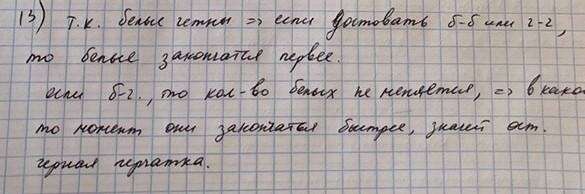 13) т.к. белые четны => если достовать б-б или ч-ч,
то белые закончатся первее.
если б-ч., то кол-во белых не меняется, => в како
то момент они закончатся быстрее, значит ост.
черная перчатка.